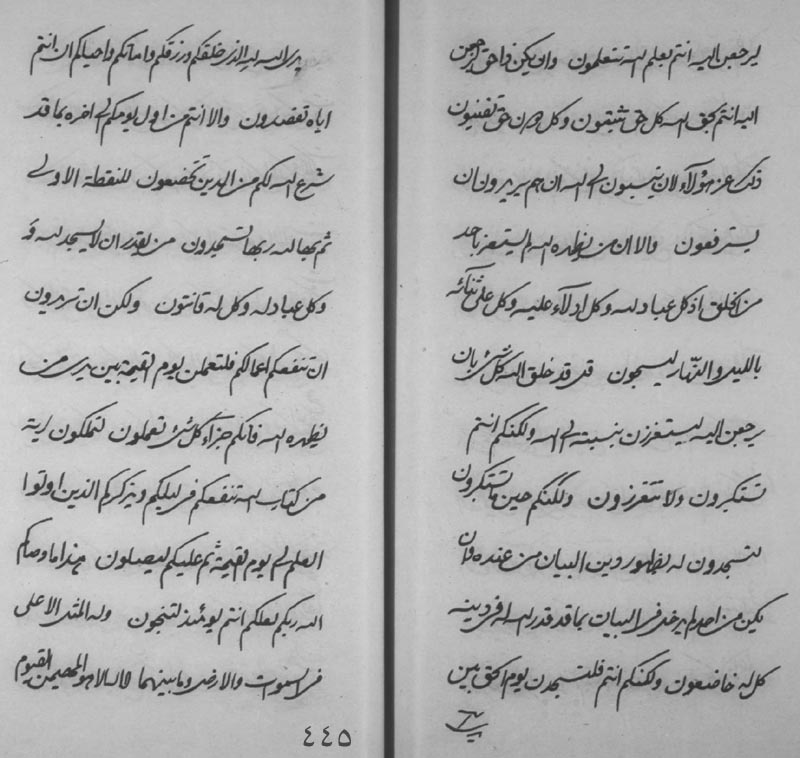 ليرجعن اليه انتم بعلم الله تتعلمون وان يكن ذا حق ليرجعن
اليه انتم بحق الله كل حق تثبتون وكل دون حق تفنيون
ذلك عز هؤلآء لان ينسبون الى الله ان هم يريدون ان
يسترفعون والا ان من يظهره الله لم يستعزز باحد
من الخلق اذ كل عباد له وكل ادلآء عليه وكل على ثنآئه
بالليل والنهار ليسجدون قل قد خلق الله كل شئ بان
يرجعن اليه ليستعززن بنسبته الى الله ولكنكم انتم
تستكبرون ولا تتعززون ولكنكم حين ما تستكبرون
لتسجدون له بظهور دين البيان من عنده فان
يكن من احد لم يدخل فى البيان بما قد قدر الله له فى دينه
كل له خاضعون ولكنكم انتم فلتسجدن يوم الحق بين
يدى
يدى الله الذى خلقكم ورزقكم واماتكم واحياكم ان انتم
اياه تقصدون والا انتم من اول يومكم الى اخره بما قد
شرع الله لكم من الدين تخضعون للنقطة الاولى
ثم بها لله ربها لتسجدون من يقدر ان لا يسجد لله
وكل عباد له وكل له قانتون ولكن ان تريدون
ان تنفعكم اعمالكم فلتعملن يوم القيمة بين يدى من
يظهره الله فانكم جزآء كل شئ تعملون لتملكون اية
من كتاب الله تنفعكم فى ليلكم ويذكركم الذين اوتوا
العلم الى يوم القيمة ثم عليكم ليصلون هذا ما وصاكم
الله ربكم لعلكم انتم يومئذ لتنجون وله المثل الاعلى
فى السموات والارض وما بينهما لا اله الا هو المهيمن القيوم
٤٤٥